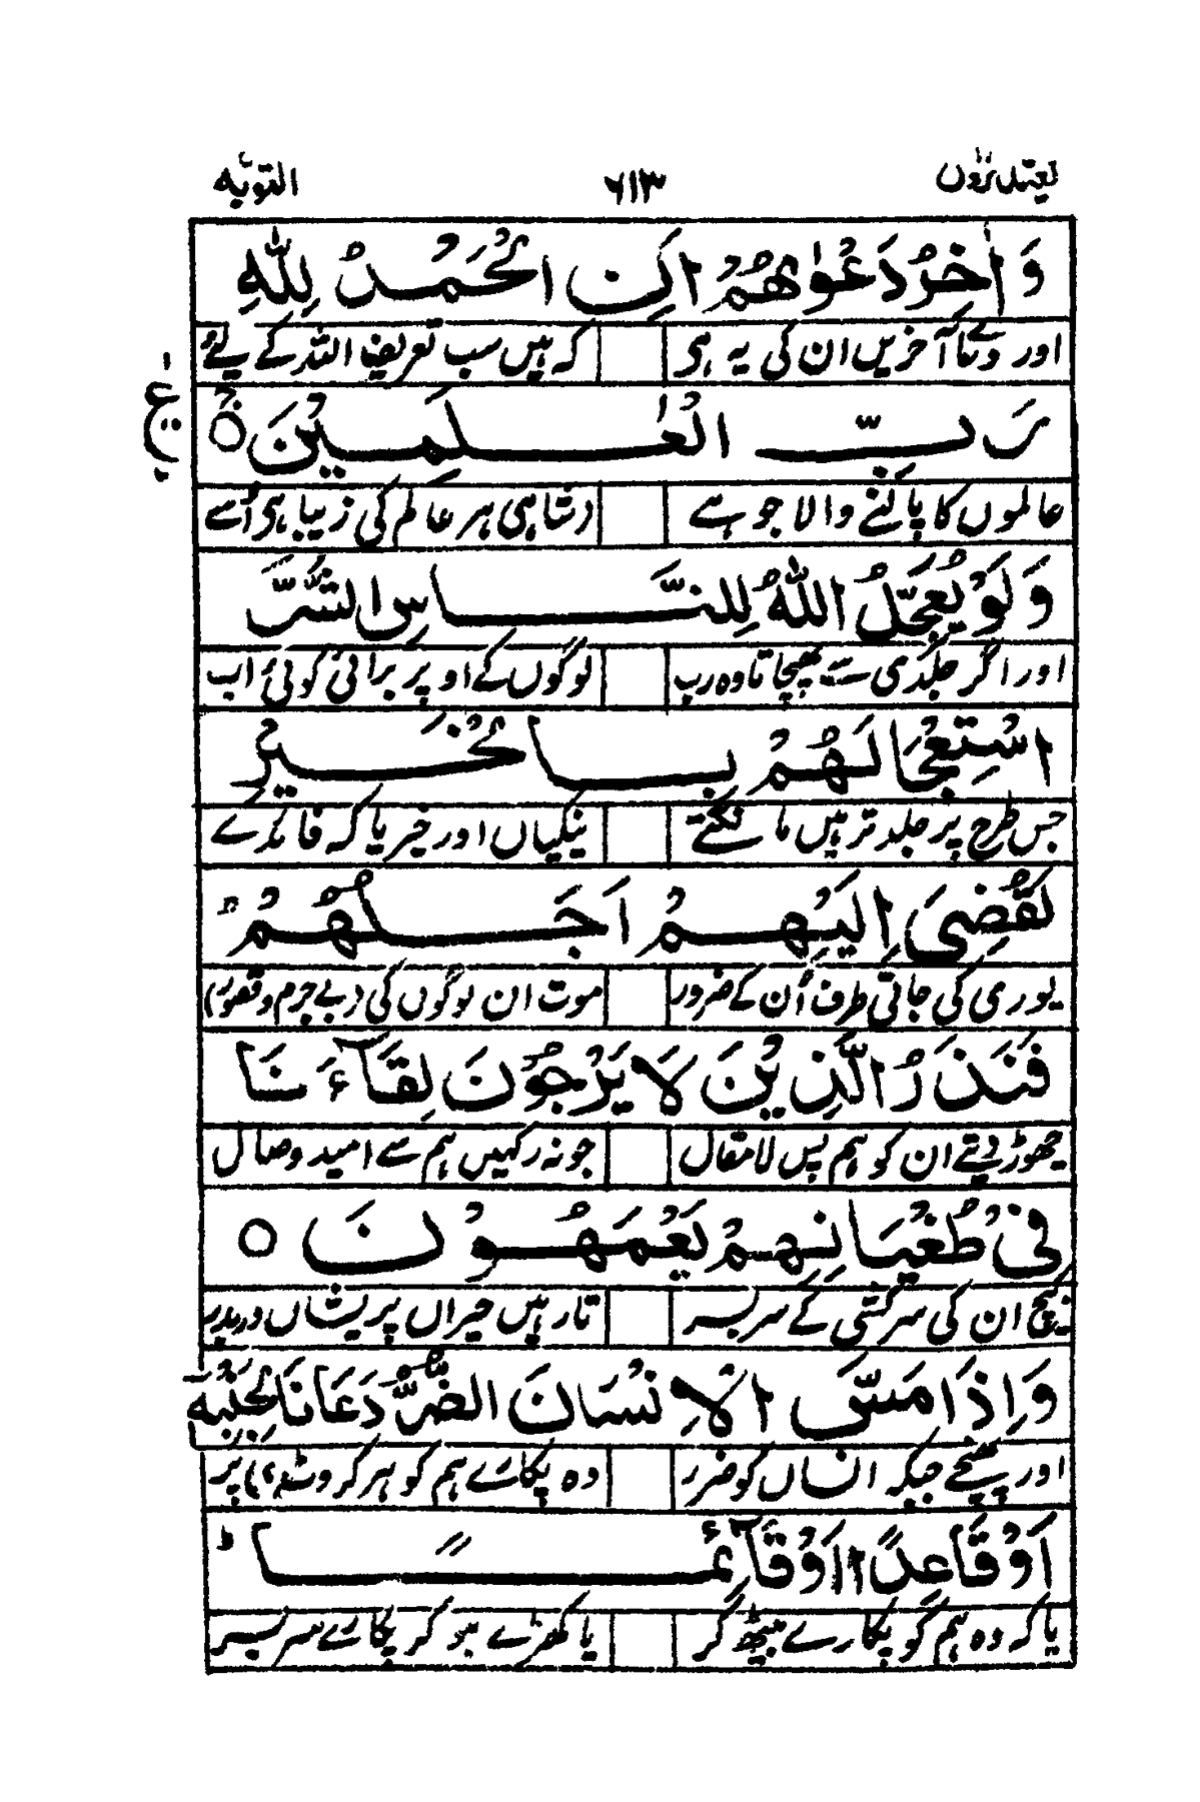 یعتذرون ۶۱۳ التوبۃ
وَاٰخِرُ دَعْوٰىهُمْ اَنِ الْحَمْدُ لِلّٰهِ
اور دعا آخریں ان کی یہ ہی کہ ہیں سب تعریفیں اللہ کے لئے
رَبِّ الْعٰلَمِيْنَ ○
ع
عالموں کا پالنے والا جو ہے رتنا ہی ہر عالم کی زیبا ہی اُسے
وَلَوْ يُعَجِّلُ اللّٰهُ لِلنَّاسِ الشَّرَّ
اور اگر جلدی سے پہنچاتا وہ رب لوگوں کے اوپر برائی کوئی اب
اسْتِعْجَالَهُمْ بِالْخَيْرِ
جس طرح پر جلد تر ہیں مانگتے نیکیاں اور خیر یا کہ فائدے
لَقُضِيَ اِلَيْهِمْ اَجَلُهُمْ ط
پوری کی جاتی طرف اُن کے ضرور موت ان لوگوں کی (بے جرم و قصور)
فَنَذَرُ الَّذِيْنَ لَا يَرْجُوْنَ لِقَآءَنَا
چھوڑ دیتے ان کو ہم پس لا مقال جو نہ رکھیں ہم سے امید وصال
فِيْ طُغْيَانِهِمْ يَعْمَهُوْنَ ○
بیچ ان کی سرکشی کے سر بسر تار ہیں حیراں پریشاں در بدر
وَاِذَا مَسَّ الْاِنْسَانَ الضُّرُّ دَعَانَا لِجَنْبِهٖٓ
اور پہنچے جبکہ انساں کو ضرر وہ پکارے ہم کو ہر کروٹ (۲) پر
اَوْ قَاعِدًا اَوْ قَآئِمًا ط
یا کہ وہ ہم کو پکارے بیٹھ کر یا کھڑے ہو کر پکارے سر بسر